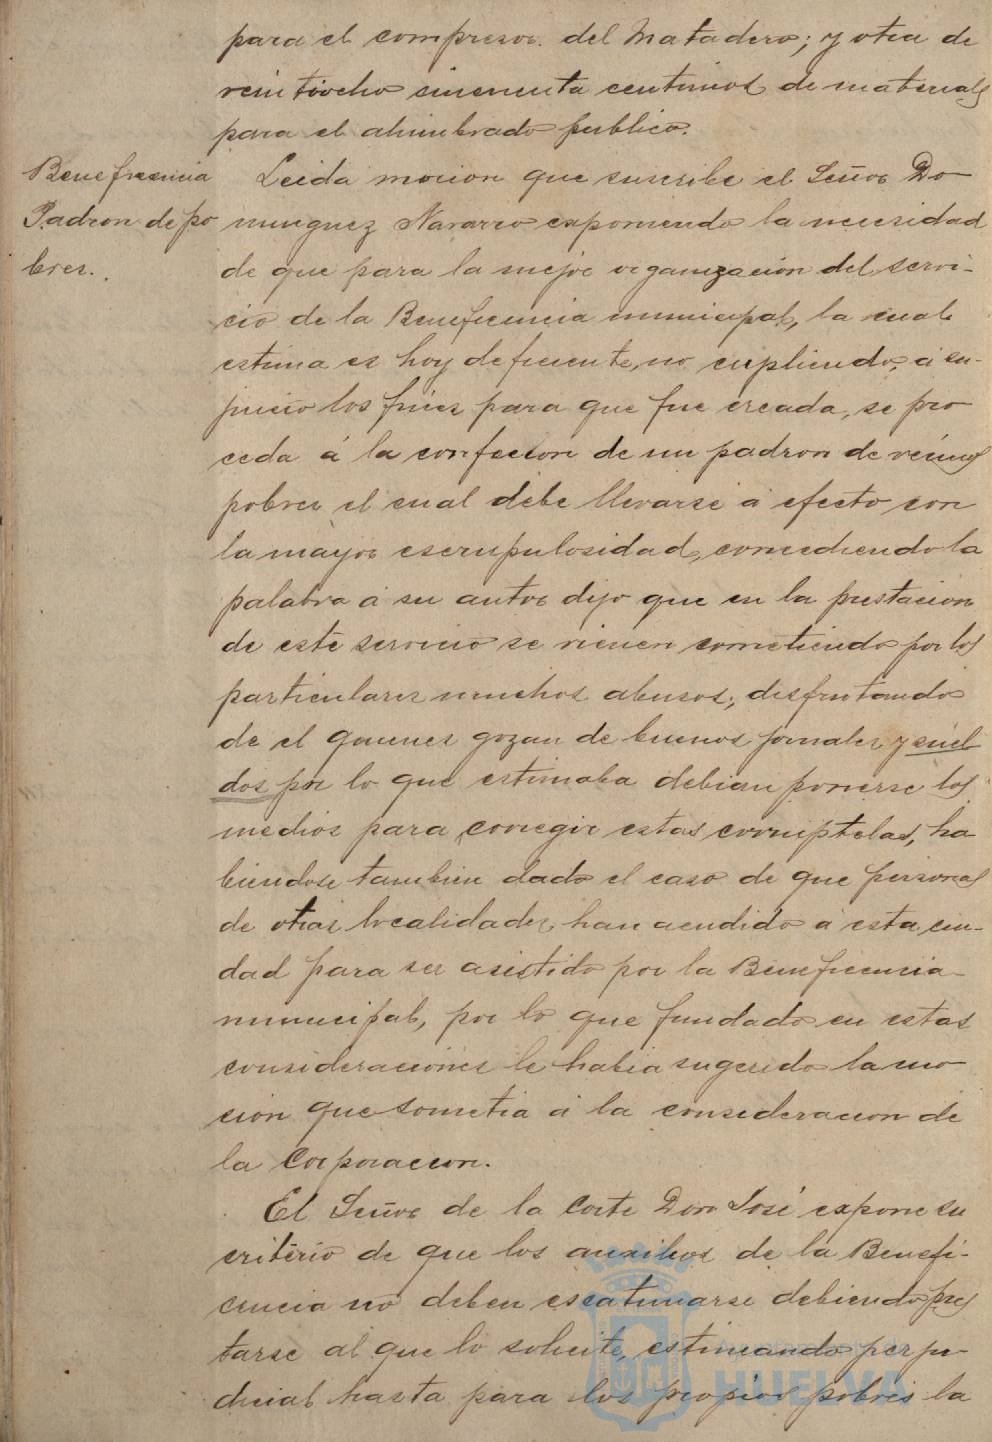 para el compresor. del Matadero; y otra de
veintiocho sincuenta centimos de materiales
para el alumbrado publico.
Beneficencia
Padron de po
bres.
Leida mocion que suscribe el Señor Do
minguez Navarro exponiendo la necesidad
de que para la mejor organizacion del servi-
cio de la Beneficencia municipal, la cual
estima es hoy deficiente, no cupliendo, á su
juicio los fines para que fue creada, se pro
ceda á la confecion de un padron de vecinos
pobres el cual debe llevarse á efecto con
la mayor escrupulosidad, concediendo la
palabra á su autor dijo que en la prestacion
de este servicio se vienen cometiendo por los
particulares muchos abusos, disfrutando
de el quienes gozan de buenos jornales y suel
dos por lo que estimaba debian ponerse los
medios para corregir estas corruptelas, ha
biendose tambien dado el caso de que personas
de otras localidades han acudido á esta ciu-
dad para ser asistido por la Beneficencia
municipal, por lo que fundado en estas
consideraciones le habia sugerido la mo
cion que sometia á la consideracion de
la Corporacion.
El Señor de la Corte Don José expone su
criterio de que los auxilios de la Benefi-
cencia no deben escatimarse debiendo pres
tarse al que lo solicite, estimando perju-
dicial hasta para los propios pobres la
HUELVA